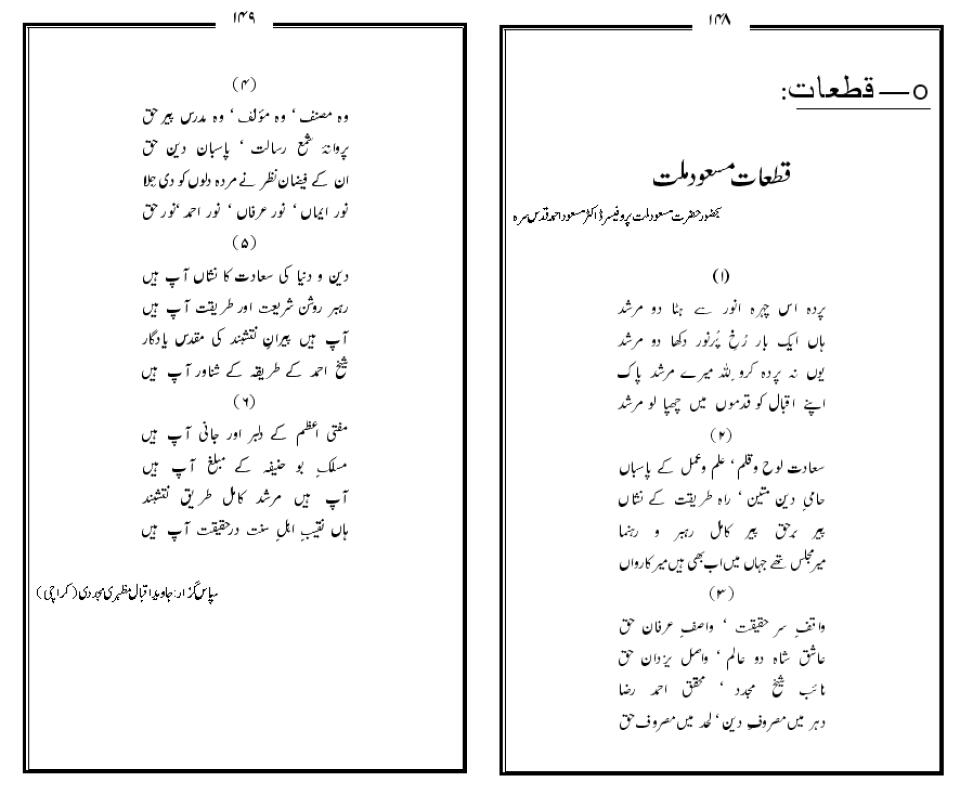 ۱۴۸
۵—قطعات:
قطعات مسعود ملت
بحضور حضرت مسعود ملت پروفیسر ڈاکٹر مسعود احمد قدس سرہ
(۱)
پردہ اس چہرہ انور سے ہٹا دو مرشد
ہاں ایک بار رُخِ پُرنور دکھا دو مرشد
یوں نہ پردہ کرو للہ میرے مرشد پاک
اپنے اقبال کو قدموں میں چھپا لو مرشد
(۲)
سعادت لوح وقلم، علم وعمل کے پاسباں
حامیِ دین متین، راہ طریقت کے نشاں
پیر برحق پیر کامل رہبر و رہنما
میر مجلس تھے جہاں میں اب بھی ہیں میر کارواں
(۳)
واقفِ سر حقیقت، واصفِ عرفان حق
عاشق شاہ دو عالم، واصل یزدان حق
نائب شیخ مجدد، محقق احمد رضا
دہر میں مصروفِ دین، لحد میں مصروف حق
۱۴۹
(۴)
وہ مصنف، وہ مؤلف، وہ مدرس پیر حق
پروانۂ شمع رسالت، پاسبان دین حق
ان کے فیضان نظر نے مردہ دلوں کو دی جلا
نور ایماں، نور عرفاں، نور احمد، نور حق
(۵)
دین و دنیا کی سعادت کا نشاں آپ ہیں
رہبر روشن شریعت اور طریقت آپ ہیں
آپ ہیں پیرانِ نقشبند کی مقدس یادگار
شیخ احمد کے طریقہ کے شناور آپ ہیں
(۶)
مفتی اعظم کے دلبر اور جانی آپ ہیں
مسلکِ بو حنیفہ کے مبلغ آپ ہیں
آپ ہیں مرشد کامل طریق نقشبند
ہاں نقیبِ اہلِ سنت درحقیقت آپ ہیں
سپاس گزار: جاوید اقبال مظہری مجددی (کراچی)